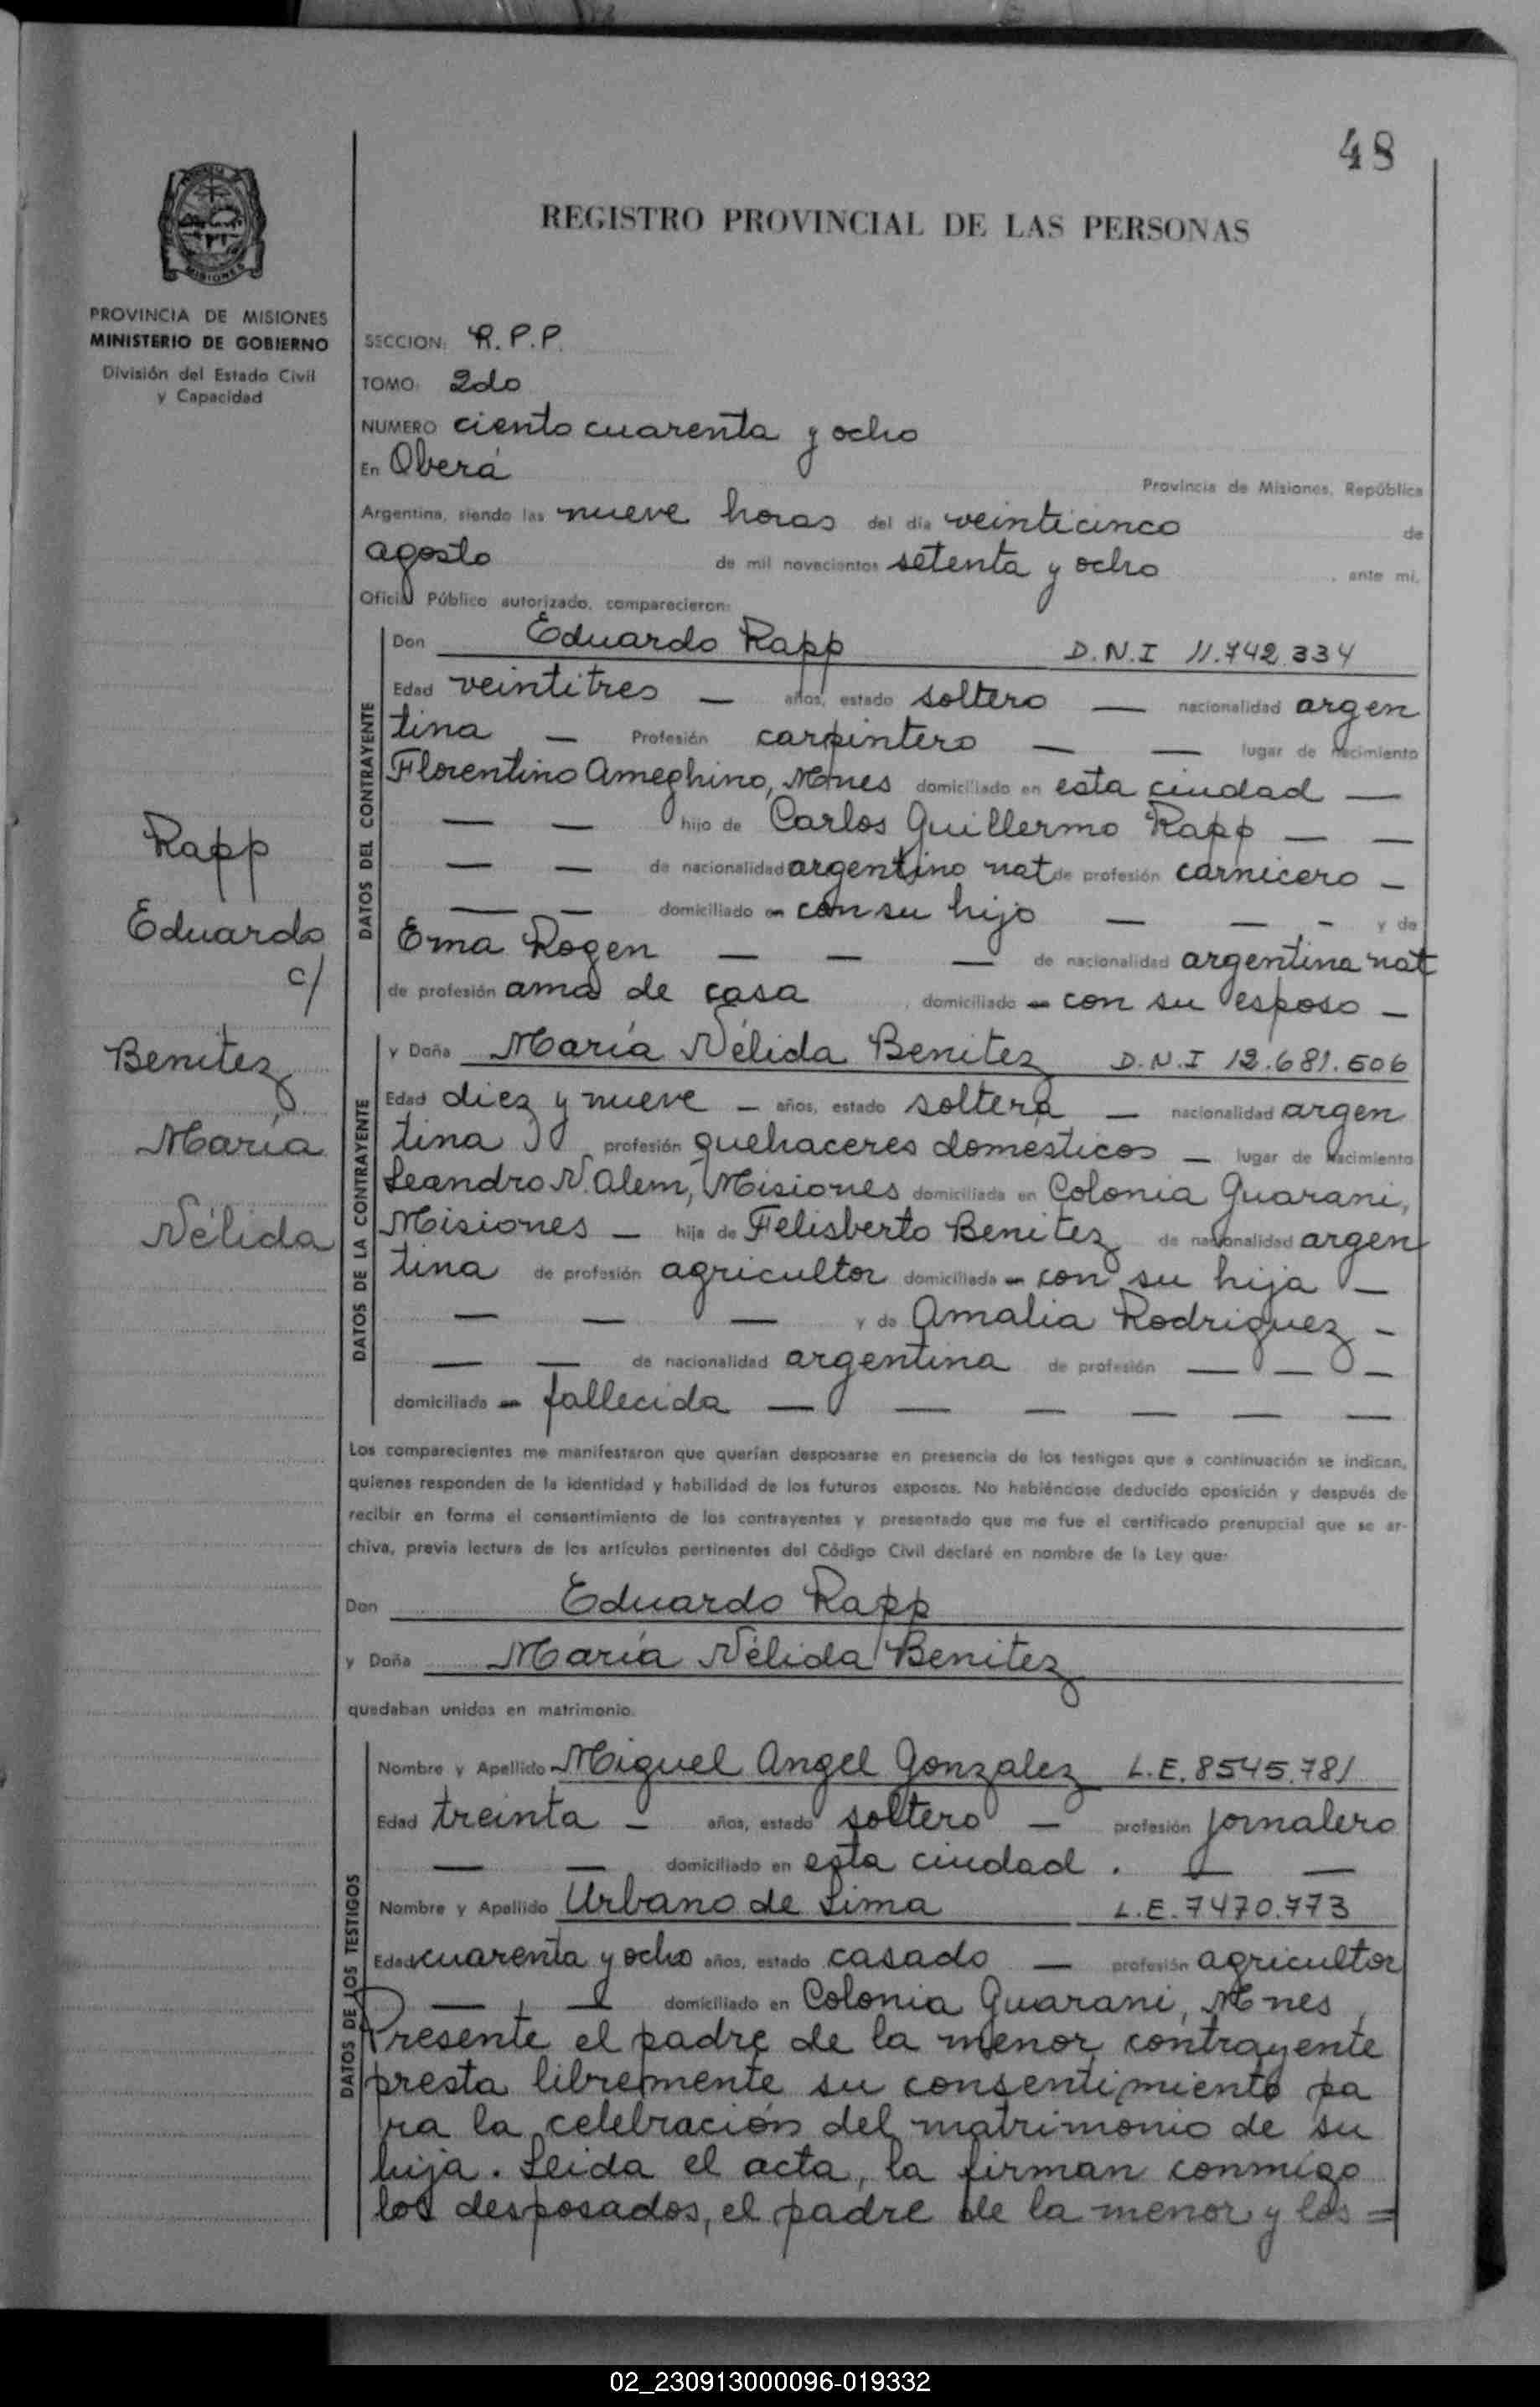 48
REGISTRO PROVINCIAL DE LAS PERSONAS
MISIONES
PROVINCIA DE MISIONES
MINISTERIO DE GOBIERNO
División del Estado Civil
y Capacidad
SECCION: R.P.P.
TOMO: 2do
NUMERO ciento cuarenta y ocho
En Oberá
Provincia de Misiones, República
Argentina, siendo las nueve horas del día veinticinco de
agosto de mil novecientos setenta y ocho, ante mi,
Oficial Público autorizado, comparecieron:
DATOS DEL CONTRAYENTE
Don Eduardo Rapp D.N.I 11.742.334
Edad veintitres — años, estado soltero — nacionalidad argen
tina — Profesión carpintero — — lugar de nacimiento
Florentino Ameghino, Mnes domiciliado en esta ciudad —
— — hijo de Carlos Guillermo Rapp — —
— — de nacionalidad argentino nat de profesión carnicero —
— — domiciliado en con su hijo — — - y de
Ema Rogen — — — de nacionalidad argentina nat
de profesión ama de casa, domiciliado con su esposo —
Rapp
Eduardo
c/
Benitez
María
Nélida
DATOS DE LA CONTRAYENTE
y Doña María Nélida Benitez D.N.I 12.681.506
Edad diez y nueve — años, estado soltera — nacionalidad argen
tina profesión quehaceres domesticos — lugar de nacimiento
Leandro N. Alem, Misiones domiciliada en Colonia Guarani,
Misiones — hija de Felisberto Benitez de nacionalidad argen
tina de profesión agricultor domiciliado con su hija —
— — — y de Amalia Rodriguez -
— — de nacionalidad argentina de profesión — — —
domiciliada fallecida — — — — — —
Los comparecientes me manifestaron que querían desposarse en presencia de los testigos que a continuación se indican,
quienes responden de la identidad y habilidad de los futuros esposos. No habiéndose deducido oposición y después de
recibir en forma el consentimiento de los contrayentes y presentado que me fue el certificado prenupcial que se ar-
chiva, previa lectura de los artículos pertinentes del Código Civil declaré en nombre de la Ley que:
Don Eduardo Rapp
y Doña María Nélida Benitez
quedaban unidos en matrimonio.
DATOS DE LOS TESTIGOS
Nombre y Apellido Miguel Angel Gonzalez L.E. 8545.781
Edad treinta — años, estado soltero — profesión jornalero
— — domiciliado en esta ciudad. — —
Nombre y Apellido Urbano de Lima L.E. 7470.773
Edad cuarenta y ocho años, estado casado — profesión agricultor
— — domiciliado en Colonia Guarani, Mnes,
Presente el padre de la menor contrayente
presta libremente su consentimiento pa
ra la celebración del matrimonio de su
hija. Leida el acta, la firman conmigo
los desposados, el padre de la menor y los =
02_230913000096-019332